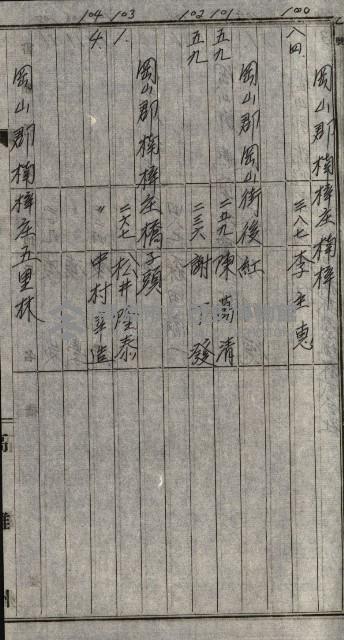 岡山郡楠梓庄楠梓
100
八四 三八七 李主恵
岡山郡岡山街後紅
101
五九 二五九 陳萬清
102
五九 二三六 謝 發
岡山郡楠梓庄橋子頭
103
1. 二六七 松井隆泰
104
4. 〃 中村 造
岡山郡楠梓庄五里林
高雄州